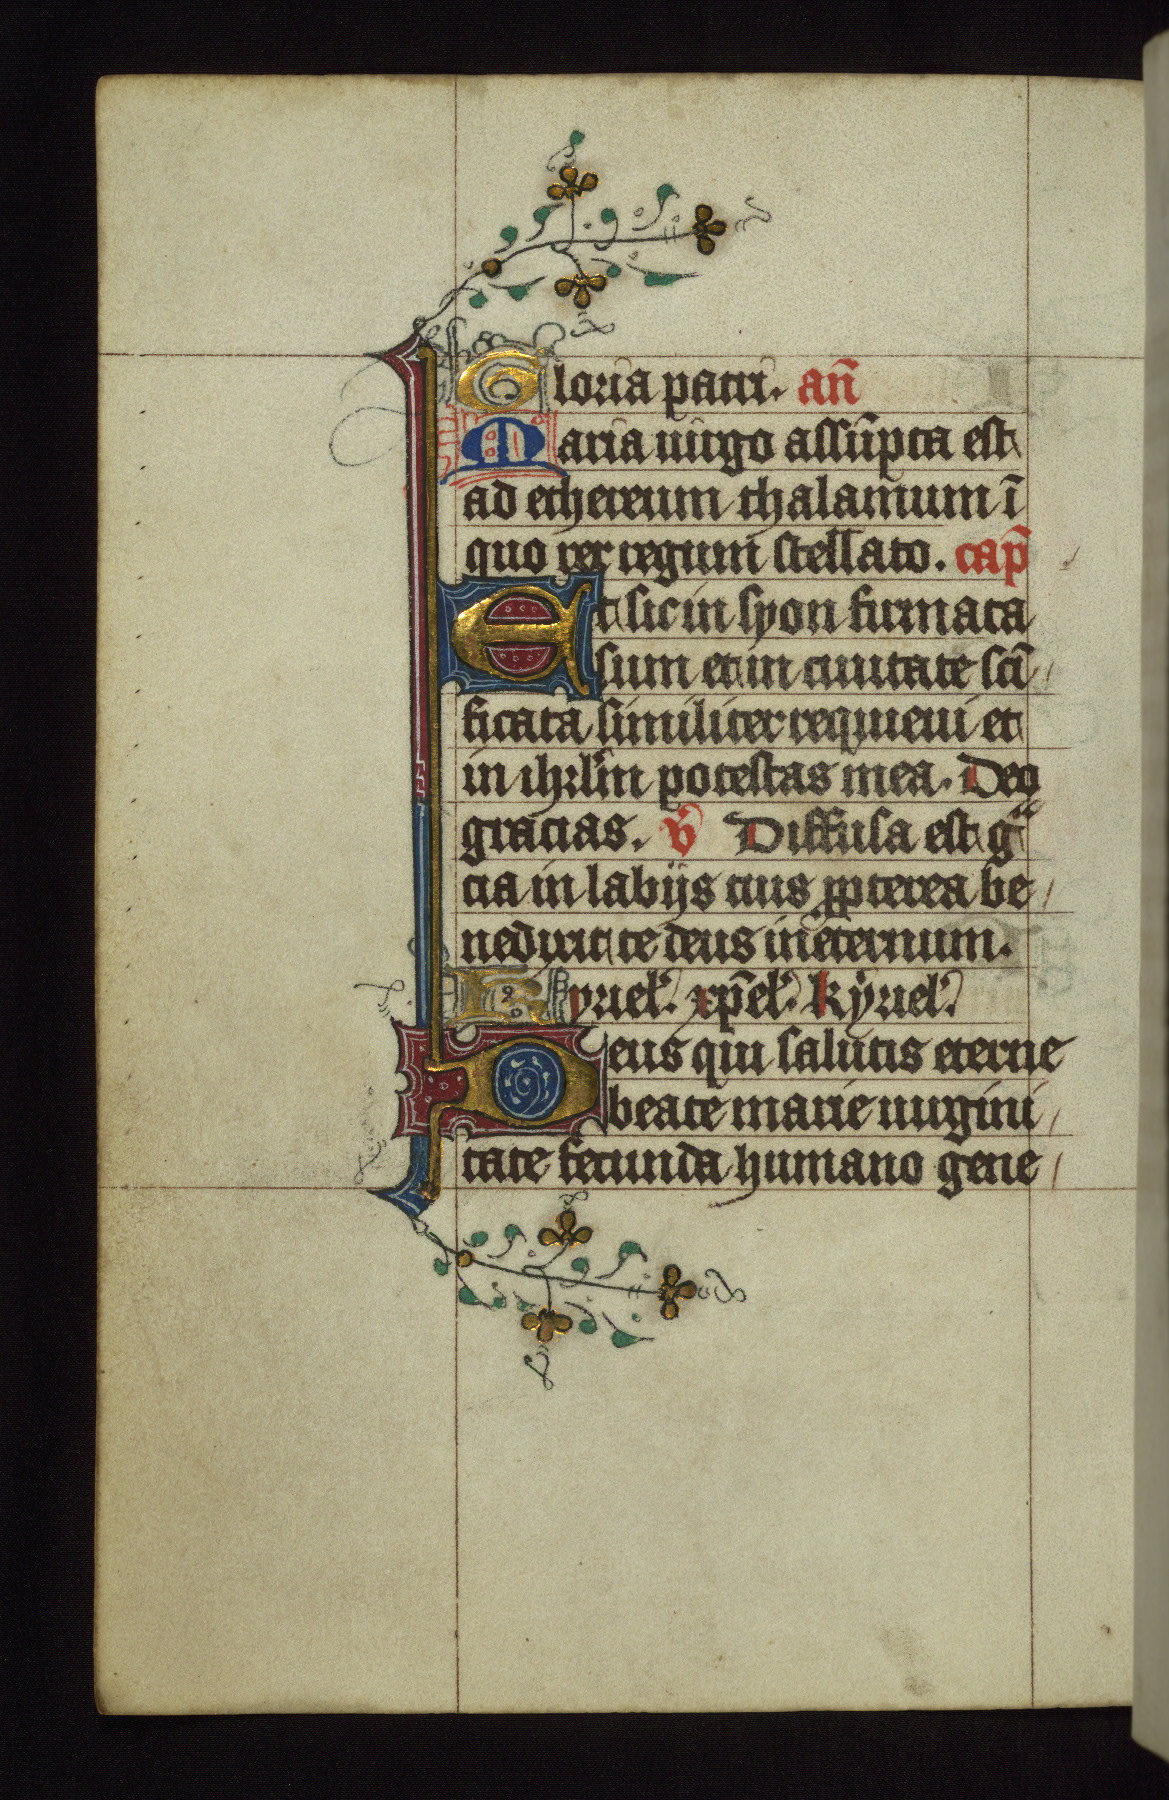 Gloria patri. an̄
Maria uirgo assūpta est
ad ethereum thalamum ī
quo rex regum stellato. cap̄
Et sic in syon firmata
sum et in ciuitate sc̄i
ficata similiter requieui et
in ihrl̄m potestas mea. Deo
gracias. v̄ Diffusa est gͣ
cia in labijs tuis ꝓpterea be
nedixit te deus in eternum.
Kyriel'. xp̄el'. kyriel'.
Deus qui salutis eterne
beate marie uirgini
tate fecunda humano gene